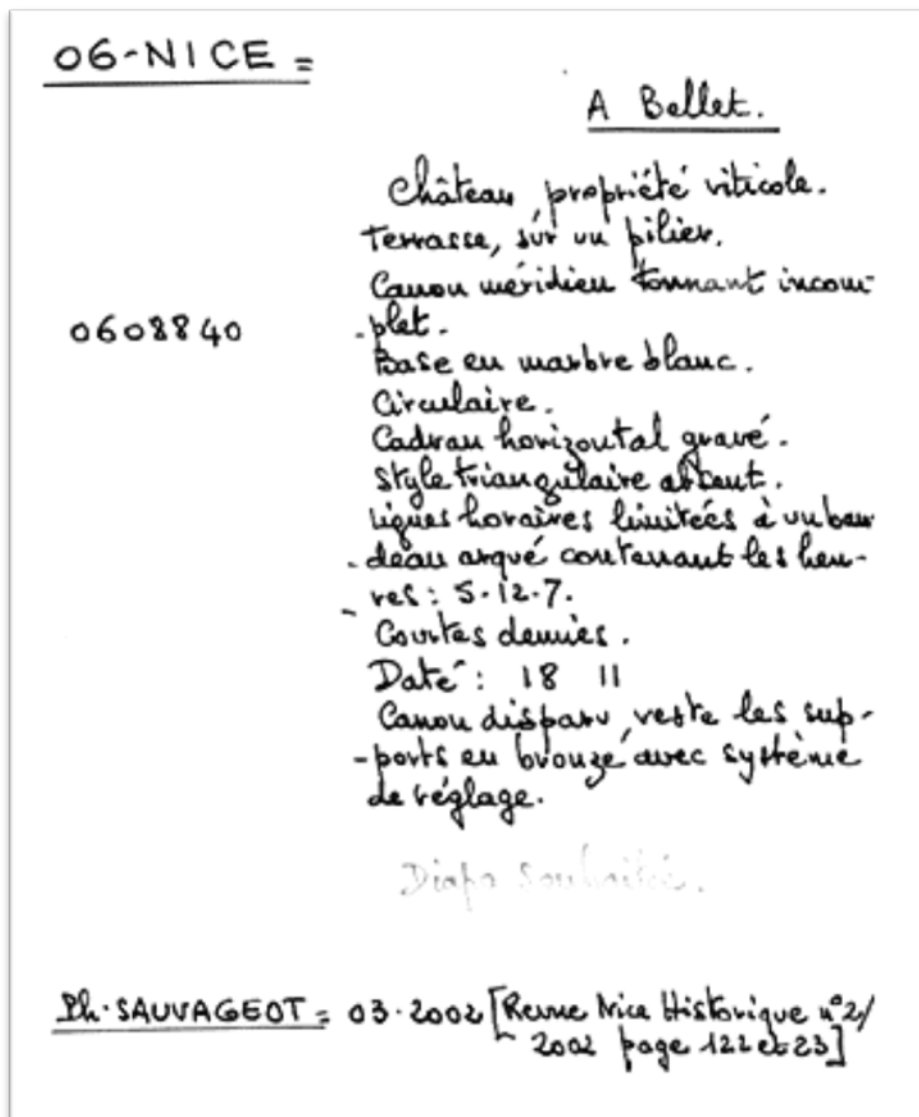 06-NICE =
A Bellet.
Château, propriété viticole.
Terrasse, sur un pilier.
Canon méridien tonnant incom-
0608840
-plet.
Base en marbre blanc.
Circulaire.
Cadran horizontal gravé.
Style triangulaire absent.
Lignes horaires limitées à un ban
-deau arqué contenant les heu-
-res : 5-12-7.
Courtes demies.
Daté : 18 11
Canon disparu, reste les sup-
-ports en bronze avec système
de réglage.
Diapo souhaitée.
Ph. SAUVAGEOT = 03-2002 [Revue Nice Historique n°2/
2002 page 122 et 23]